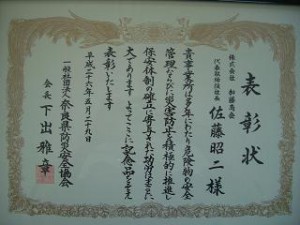 表彰状
株式会社 松藤商会
代表取締役社長
佐藤昭二様
貴事業所は多年にわたり危険物の安全
管理ならびに災害防止を積極的に推進し
保安体制の確立に寄与された功労はまことに
大であります よってここに記念品を添え
表彰いたします
平成二十六年五月二十九日
一般社団法人奈良県防災安全協会
会長 下出雅章